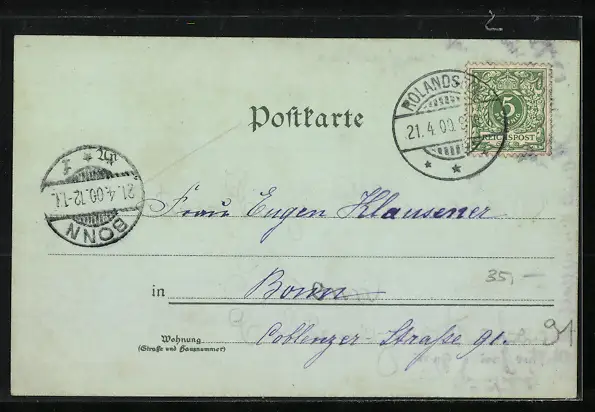 2
Postkarte
5
REICHSPOST
21.4.00
21.4.00.12-1
BONN
Frau Eugen Klausener
35,-
in Bonn
Wohnung
(Straße und Hausnummer)
Coblenzer-Straße 91.
91